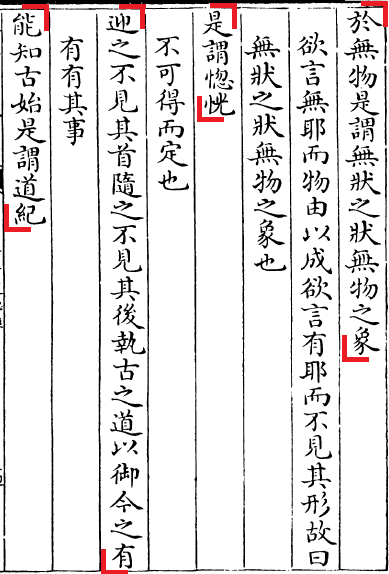 於無物是謂無狀之狀無物之象
欲言無耶而物由以成欲言有耶而不見其形故曰
無狀之狀無物之象也
是謂惚恍
不可得而定也
迎之不見其首隨之不見其後執古之道以御今之有
有有其事
能知古始是謂道紀